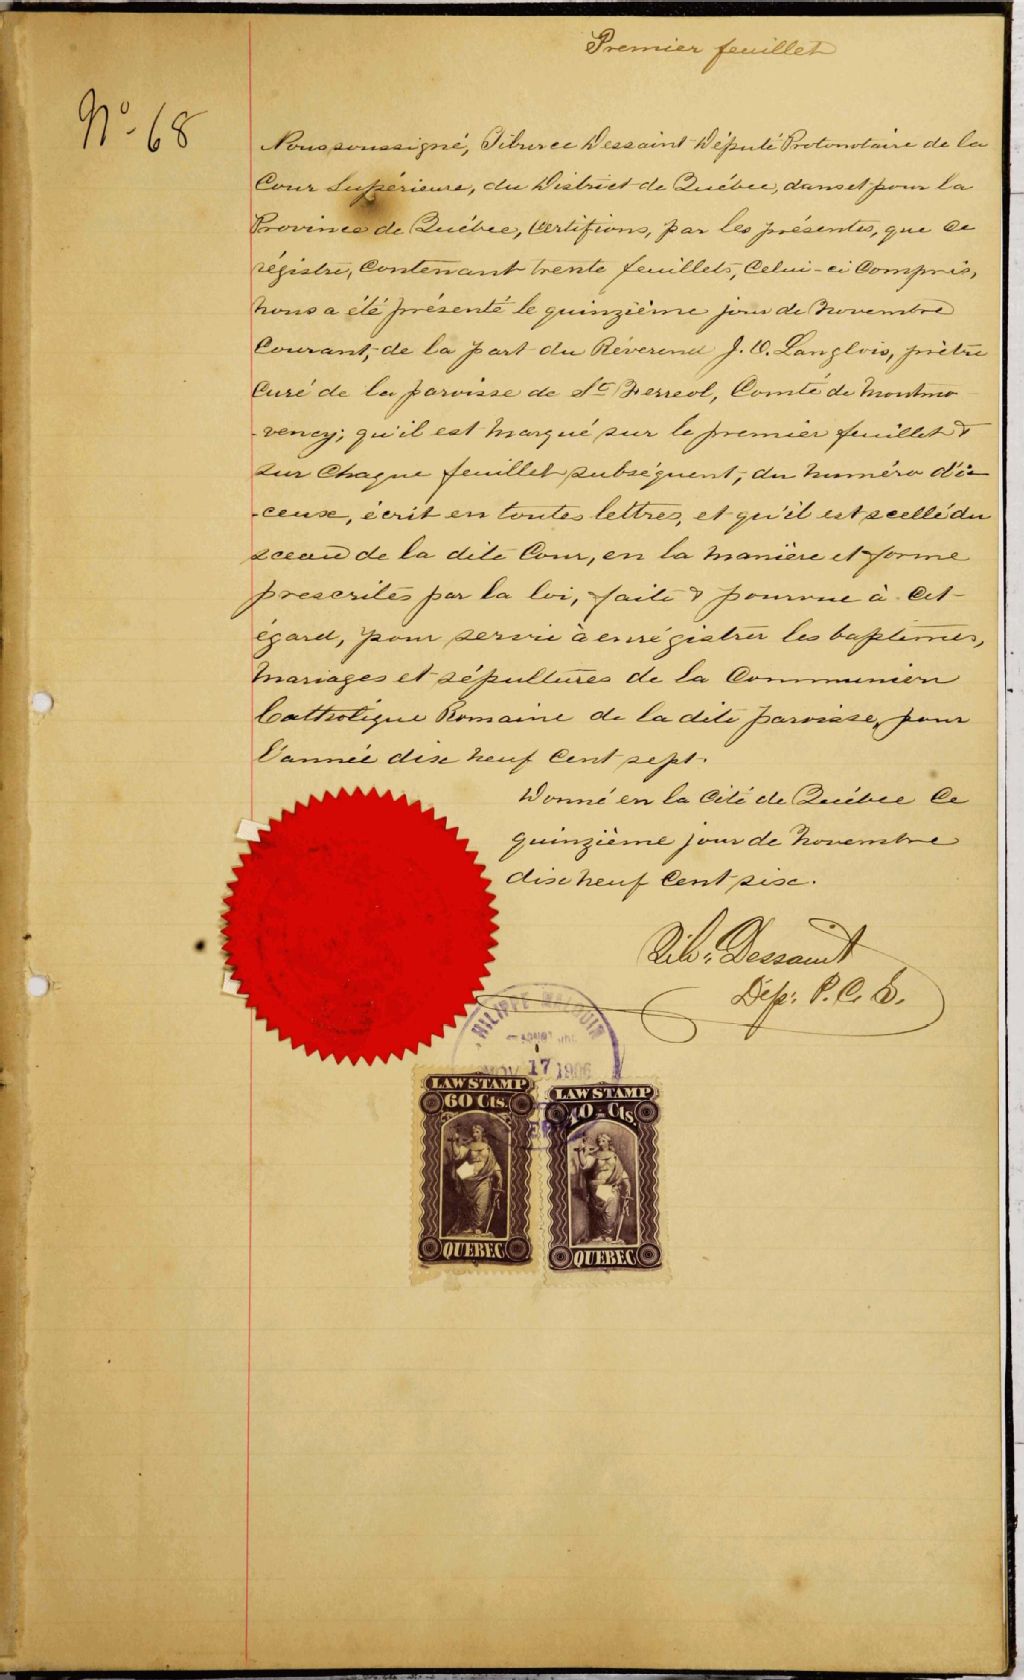 Premier feuillet
No. 68
Nous soussigné, Tiburce Dessaint Député Protonotaire de la
Cour Supérieure, du District de Québec, dans et pour la
Province de Québec, Certifions, par les présentes, que ce
régistre, contenant trente feuillets, celui-ci compris,
nous a été présenté le quinzième jour de Novembre
Courant, de la part du Révérend J. O. Langlois, prêtre
Curé de la paroisse de St Ferreol, Comté de Montmo
-rency; qu'il est marqué sur le premier feuillet &
sur chaque feuillet subséquent, du numéro d'i-
-ceux, écrit en toutes lettres, et qu'il est scellé du
sceau de la dite Cour, en la manière et forme
prescrites par la loi, faite & pourvue à cet
égard, pour servir à enrégistrer les baptêmes,
mariages et sépultures de la Communion
Catholique Romaine de la dite paroisse, pour
l'année dix neuf cent sept.
Donné en la Cité de Québec ce
quinzième jour de Novembre
dix neuf cent six.
Tib: Dessaint
Dép: P. C. S.
PHILIPPE MALOUIN
NOV 17 1906
LAW STAMP
60 Cts.
QUEBEC
LAW STAMP
40 Cts.
QUEBEC